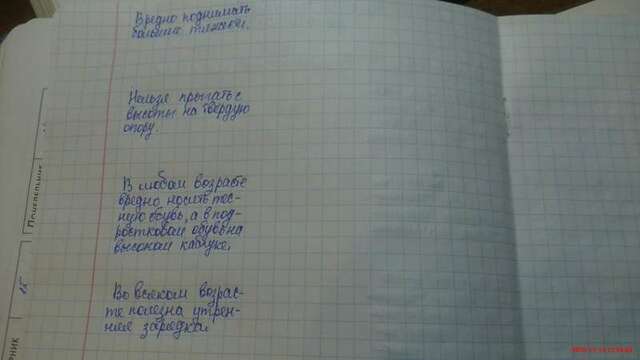 Вредно поднимать
большие тяжести.
Нельзя прыгать с
высоты на твердую
опору.
В любом возрасте
вредно носить тес-
ную обувь, а в под-
ростковом обувь на
высоком каблуке.
Во всяком возрас-
те полезна утрен-
няя зарядка.
Понедельник